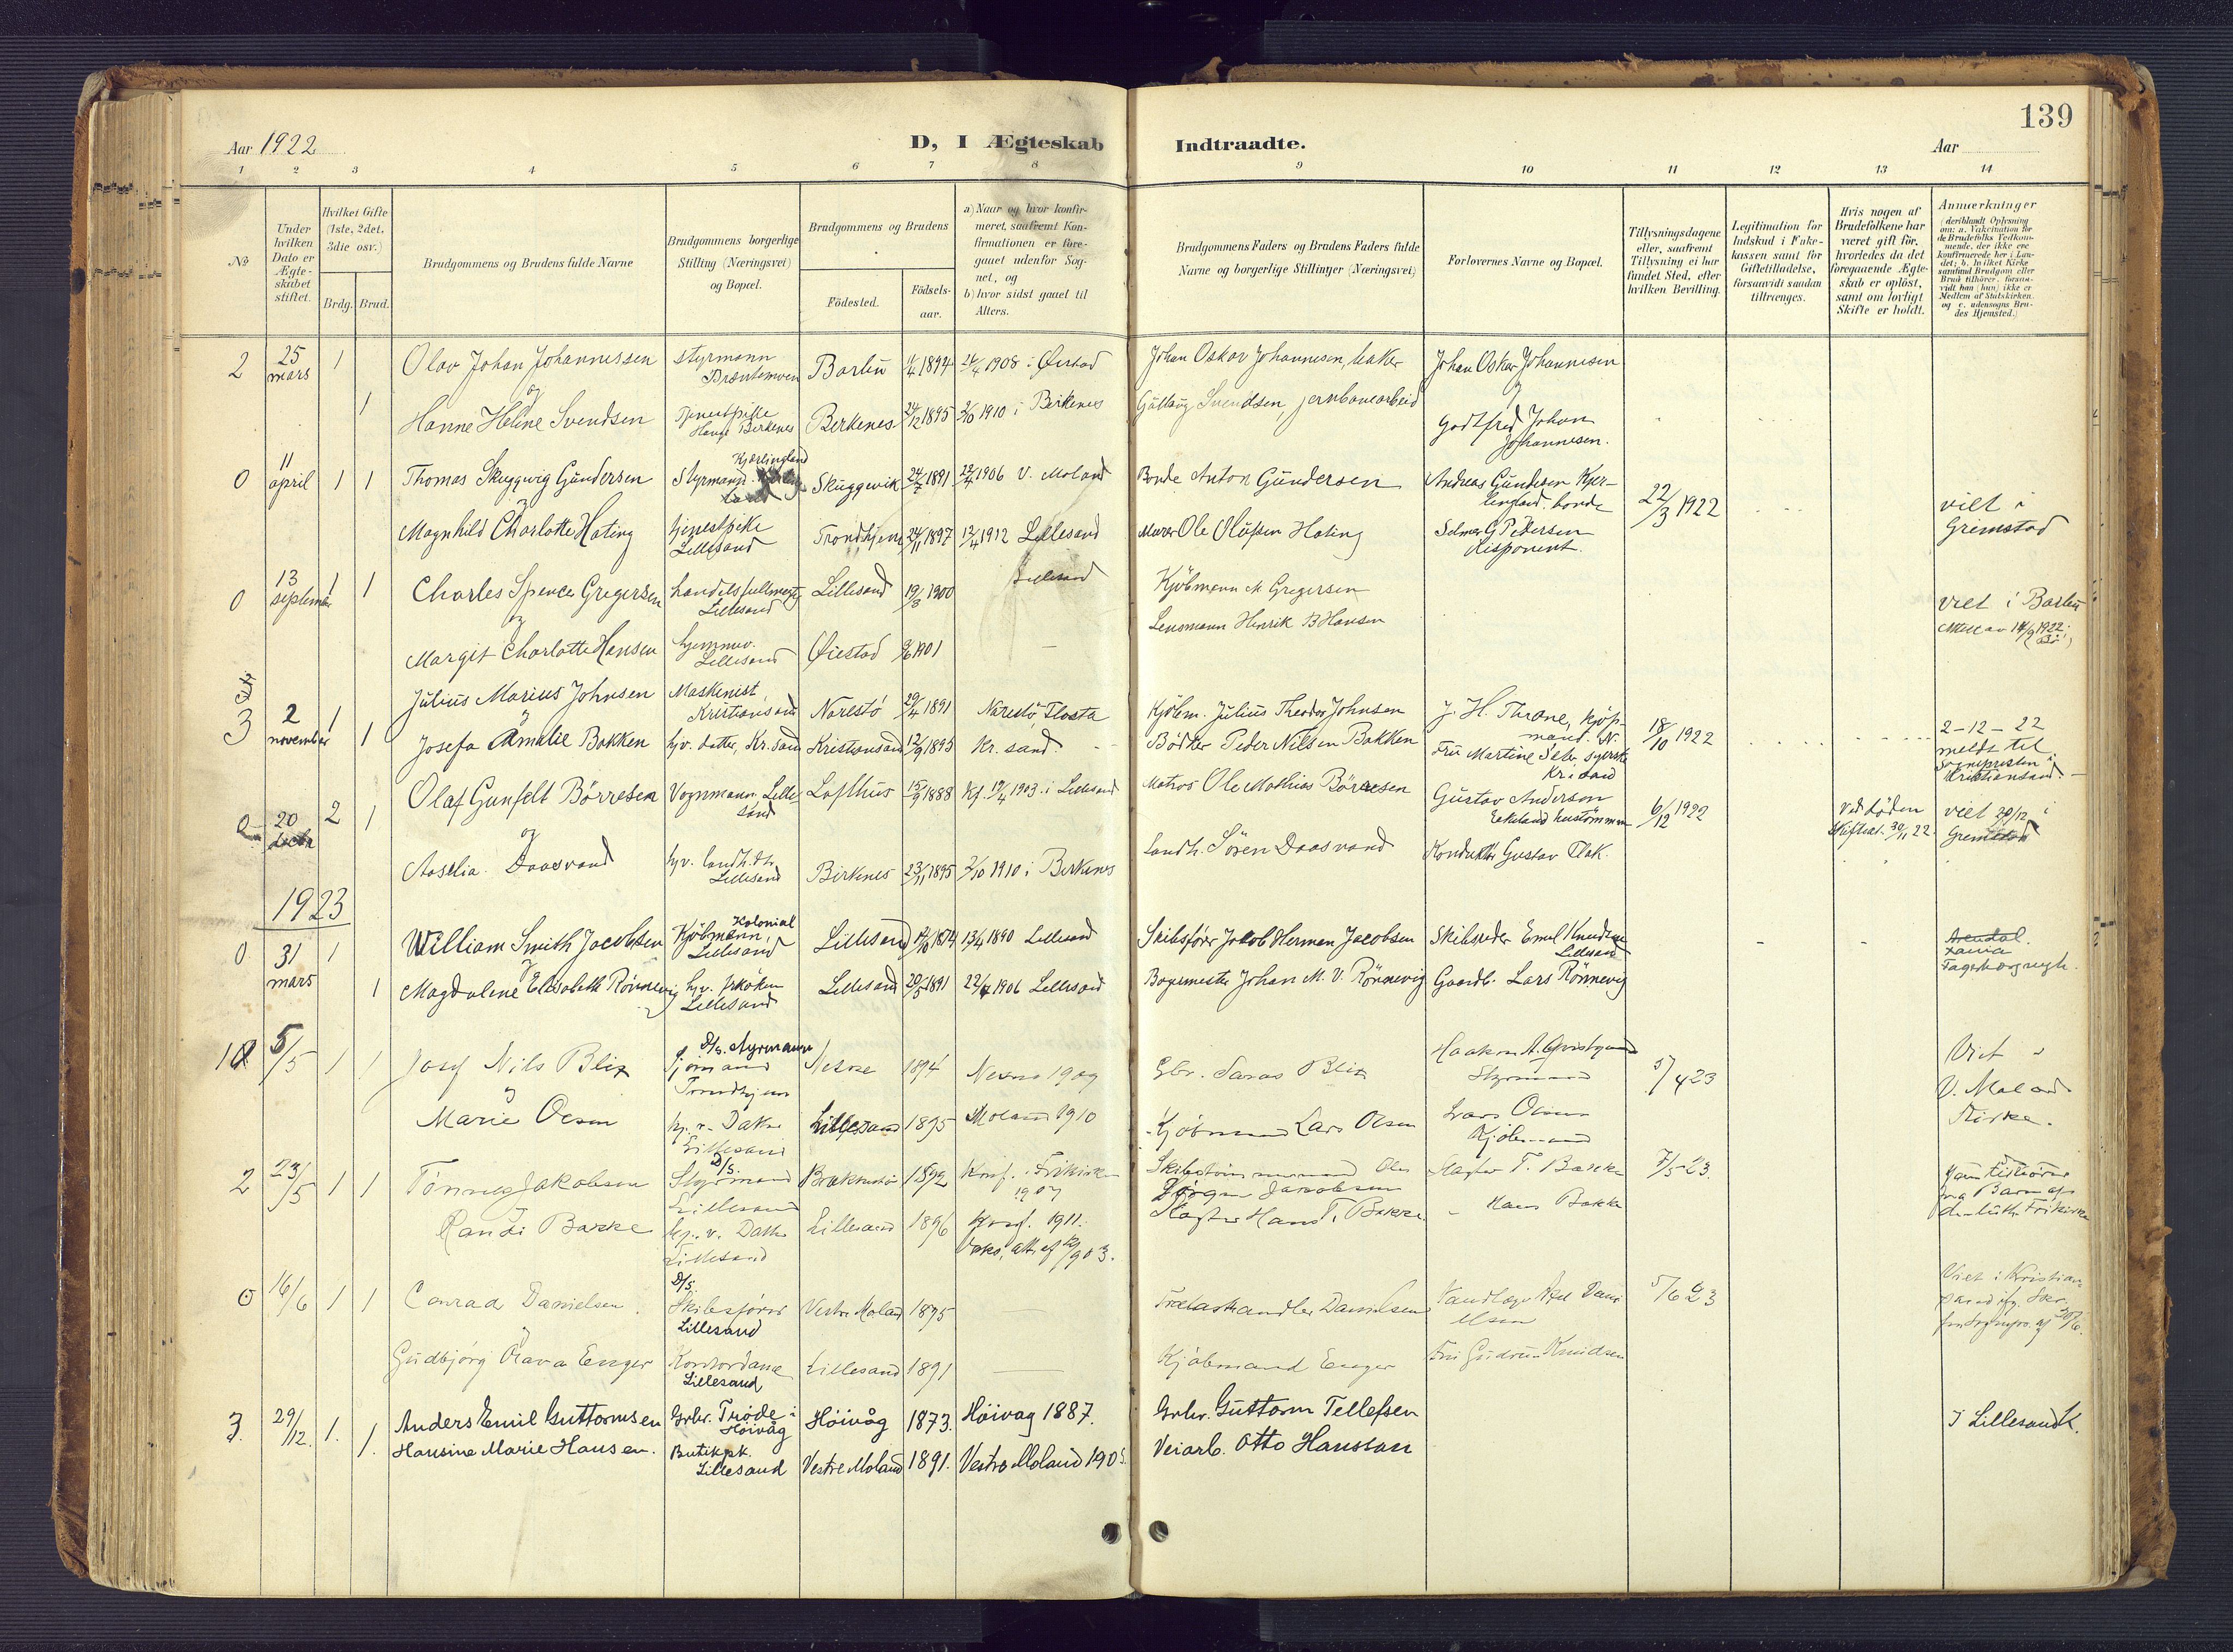 139
Aar 1922
D, I Ægteskab Indtraadte.
Aar
1 2 3 4 5 6 7 8 9 10 11 12 13 14
No
Under hvilken Dato er Ægteskabet stiftet.
Hvilket Gifte (1ste, 2det, 3die osv.)
Brdg. Brud.
Brudgommens og Brudens fulde Navne
Brudgommens borgerlige Stilling (Næringsvei) og Bopæl.
Brudgommens og Brudens
Fødested.
Fødselsaar.
a) Naar og hvor konfirmeret, saafremt Konfirmationen er foregaaet udenfor Sognet, og
b) hvor sidst gaaet til Alters.
Brudgommens Faders og Brudens Faders fulde Navne og borgerlige Stillinger (Næringsvei)
Forlovernes Navne og Bopæl.
Tillysningsdagene eller, saafremt Tillysning ei har fundet Sted, efter hvilken Bevilling.
Legitimation for Indskud i Enkekassen samt for Giftetilladelse, forsaavidt saadan tiltrænges.
Hvis nogen af Brudefolkene har været gift før, hvorledes da det foregaaende Ægteskab er opløst, samt om lovligt Skifte er holdt.
Anmærkninger
2 25 mars 1 Olav Johan Johannessen styrmann Barbu 1894 1908 i Øiestad Johan Oskar Johannesen, baker Johan Oskar Johannesen
og
1 Hanne Heline Svendsen Tjenestpike Birkenes Birkenes 24/12 1895 2/10 1910 i Birkenes Gullaug Svendsen, jernbanearbeid Godtfred Johan Johannesen.
0 11 april 1 1 Thomas Skuggevig Gundersen Styrmand Kjærlingland Skuggevik 24/7 1891 1906 V. Moland Bonde Anton Gundersen Andreas Gundersen Kjerlingland bonde 22/3 1922 viet i Grimstad
Magnhild Charlotte Hating tjenestpike Lillesand Trondhjem 24/11 1897 1912 Lillesand Murer Ole Olufsen Hating Selmer G Pedersen disponent.
0 13 september 1 1 Charles Spence Gregersen handelsfullmegtig Lillesand Lillesand 19/3 1900 Lillesand Kjøbmann M Gregersen viet i Barbu
og
Margit Charlotte Hansen hjemmev. Lillesand Øiestad 1901 Lensmann Henrik B Hansen Meld av 14/9 1922
3 2 november 1 Julius Marius Johnsen Maskinist, Kristiansand Narestö 29/4 1891 Narestö, Flosta Kjöbm. Julius Theodor Johnsen J. H. Thrane, kjöpmand 18/10 1922 2-12-22 meldt til Sogneprästen i Kristiansand.
og
1 Josefa Amalie Bakken hjv. datter, Kr.sand Kristiansand 12/9 1895 Kr. sand Bödker Peder Nilsen Bakken Fru Martine syerske Kr.sand
0 20 decbr 2 1 Olaf Gunfelt Börresen Vognmann Lillesand Lofthus 15/9 1888 Kf. 19/4 1903 i Lillesand Matros Ole Mathias Börresen Gustav Anderson 6/12 1922 Ved döden Skifteat. 30/11 22. viet 20/12 i Grimstad
og
Aaselia Daasvand hjv. landh. dtr. Lillesand Birkenes 23/11 1895 2/10 1910 i Birkenes Landh. Sören Daasvand Konduktör Gustav Flak.
1923
0 31 mars 1 William Smith Jacobsen Kolonial Kjöbmann, Lillesand Lillesand 1874 13/4 1890 Lillesand Skibsförer Jakob Herman Jacobsen Skibsreder Emil Knudsen Lillesand Arendal.
og
1 Magdalene Elisabeth Rönnevig hjv. fröken Lillesand Lillesand 20/5 1891 22/4 1906 Lillesand Bogermester Johan M. V. Rönnevig Gaardb. Lars Rönnevig
10 5/5 1 1 Josef Nils Blix D/s. styrmann Sjömand Trondhjem Nesne 1894 Nesne 1909 Gbr. Blix Styrmand 5/4 23 Viet i V. Moland Kirke.
og
Marie Olsen hj. v. Datter Lillesand Lillesand 1895 Moland 1910 Kjöbmand Lars Olsen Lars Olsen Kjöbmand
2 23/5 1 1 Tönnes Jakobsen D/s. Styrmand Lillesand 1892 Konf. i Frikirken 1907 Skibstömmermand Jörgen Jacobsen Slagter T. Bakke 7/5-23.
Randi Bakke hj. v. Datter Lillesand Lillesand 1896 Konf. 1911. Slagter Hans T. Bakke Hans Bakke den luth. Frikirke
0 16/6 1 1 Conrad Danielsen D/s. Skibsförer Lillesand Vestre Moland 1895 Trælasthandler Danielsen Tandlæge Danielsen 5/6 23 Viet i Kristiansand
og
Gudbjörg Olava Enger Kontordame Lillesand Lillesand 1891 Kjöbmand Enger Frk Gudrun Knudsen
3. 29/12. 1. Anders Emil Guttormsen Grbr. Tröde i Höivåg Höivåg 1873. Höivag 1887. Grbr. Guttorm Tellefsen I Lillesand K.
1. Hansine Marie Hansen. Butikpk. Lillesand Vestre Moland 1891. Vestre Moland 1905. Veiarb. Otto Hanssen